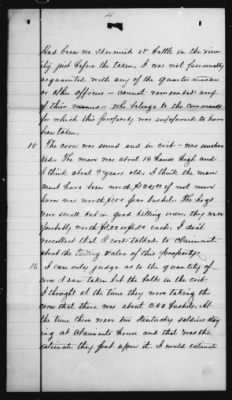 4
Had been no skirmish or battle in the vicin-
ity just before the taken. I was not personally
acquainted with any of the quarter-master
or other officers - cannot remember any
of their names - who belonged to the command
for which this property was supposed to have
been taken.
15 The corn was sound and in crib - was unshuck-
ed. The mare was about 16 hands high and
I think about 7 years old. I think the mare
must have been worth $ if not more
Corn was worth per bushel. The hogs
was small but in good killing order, they were
probably worth each. I don't
recollect that I ever talked to Claimant
about the value of this property.
16 I can only judge as to the quantity of
corn I saw taken but the bulk in the crib
I thought at the time they were taking the
corn that there was about 200 bushels. At
the time there were two Kentucky soldiers stay
ing at Claimants house and that was the
estimate they put upon it. I would estimate